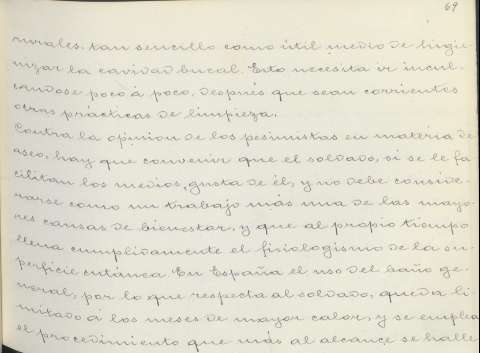 69
rurales tan sencillo como útil medio de higie-
nizar la cavidad bucal. Esto necesita ir incul-
candose poco á poco, después que sean corrientes
otras practicas de limpieza.
Contra la opinion de los pesimistas en materia de
aseo, hay que convenir que el soldado, si se le fa-
cilitan los medios, gusta de él, y no debe conside-
rarse como un trabajo más una de las mayo-
res causas de bienestar, y que al propio tiempo
llena cumplidamente el fisiologismo de la su-
perficie cutánea. En España el uso del baño ge-
neral, por lo que respecta al soldado, queda li-
mitado á los meses de mayor calor, y se emplea
el procedimiento que más al alcance se halle